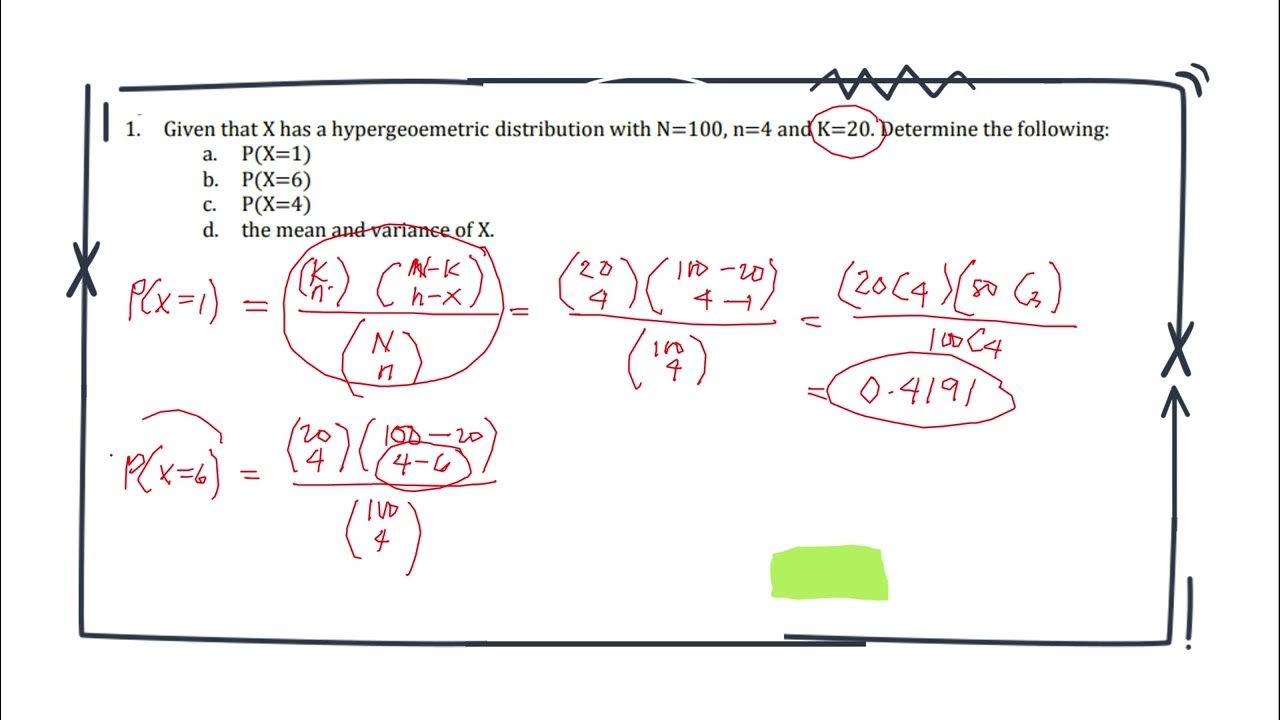 1. Given that X has a hypergeoemetric distribution with N=100, n=4 and K=20. Determine the following:
a. P(X=1)
b. P(X=6)
c. P(X=4)
d. the mean and variance of X.
P(X=1) = (K n) (N-K n-x) / (N n) = (20 4) (100-20 4-1) / (100 4) = (20C4)(80C3) / 100C4
= 0.4191
P(X=6) = (20 4) (100-20 4-6) / (100 4)